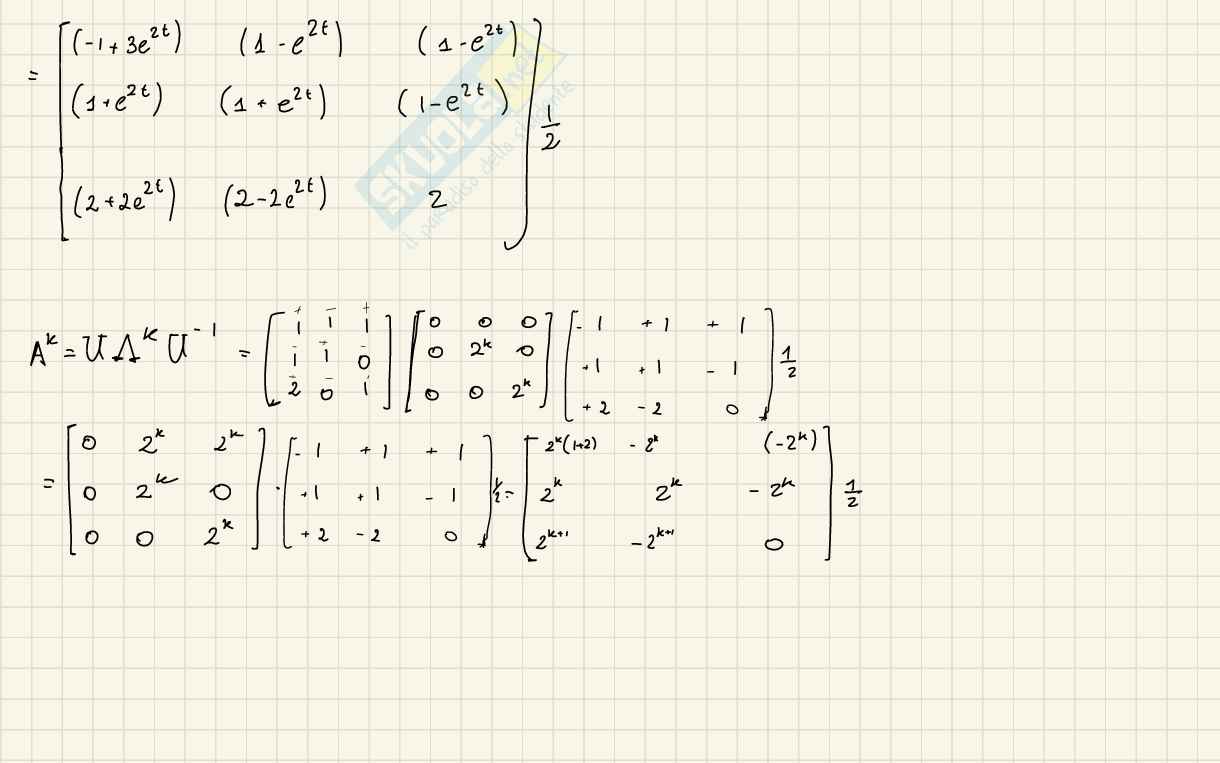 = [ (-1+3e^{2t}) (1-e^{2t}) (1-e^{2t})
(1+e^{2t}) (1+e^{2t}) (1-e^{2t})
(2+2e^{2t}) (2-2e^{2t}) 2 ] 1/2
SKUOLA.net
il paradiso dello studente
A^k = U Λ^k U^{-1} = [ 1 1 1 ; 1 1 0 ; 2 0 1 ] [ 0 0 0 ; 0 2^k 0 ; 0 0 2^k ] [ -1 +1 +1 ; +1 +1 -1 ; +2 -2 0 ] 1/2
= [ 0 2^k 2^k ; 0 2^k 0 ; 0 0 2^k ] · [ -1 +1 +1 ; +1 +1 -1 ; +2 -2 0 ] 1/2 = [ 2^k(1+2) -2^k (-2^k) ; 2^k 2^k -2^k ; 2^{k+1} -2^{k+1} 0 ] 1/2